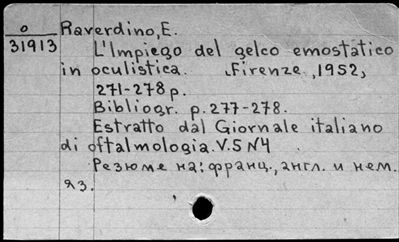 О
31913
Raverdino, E.
L'Impiego del gelco emostatico
in oculistica. Firenze, 1952,
271-278 p.
Bibliogr. p. 277-278.
Estratto dal Giornale italiano
di oftalmologia. V. 5 N4
Резюме на: франц., англ. и нем.
яз.